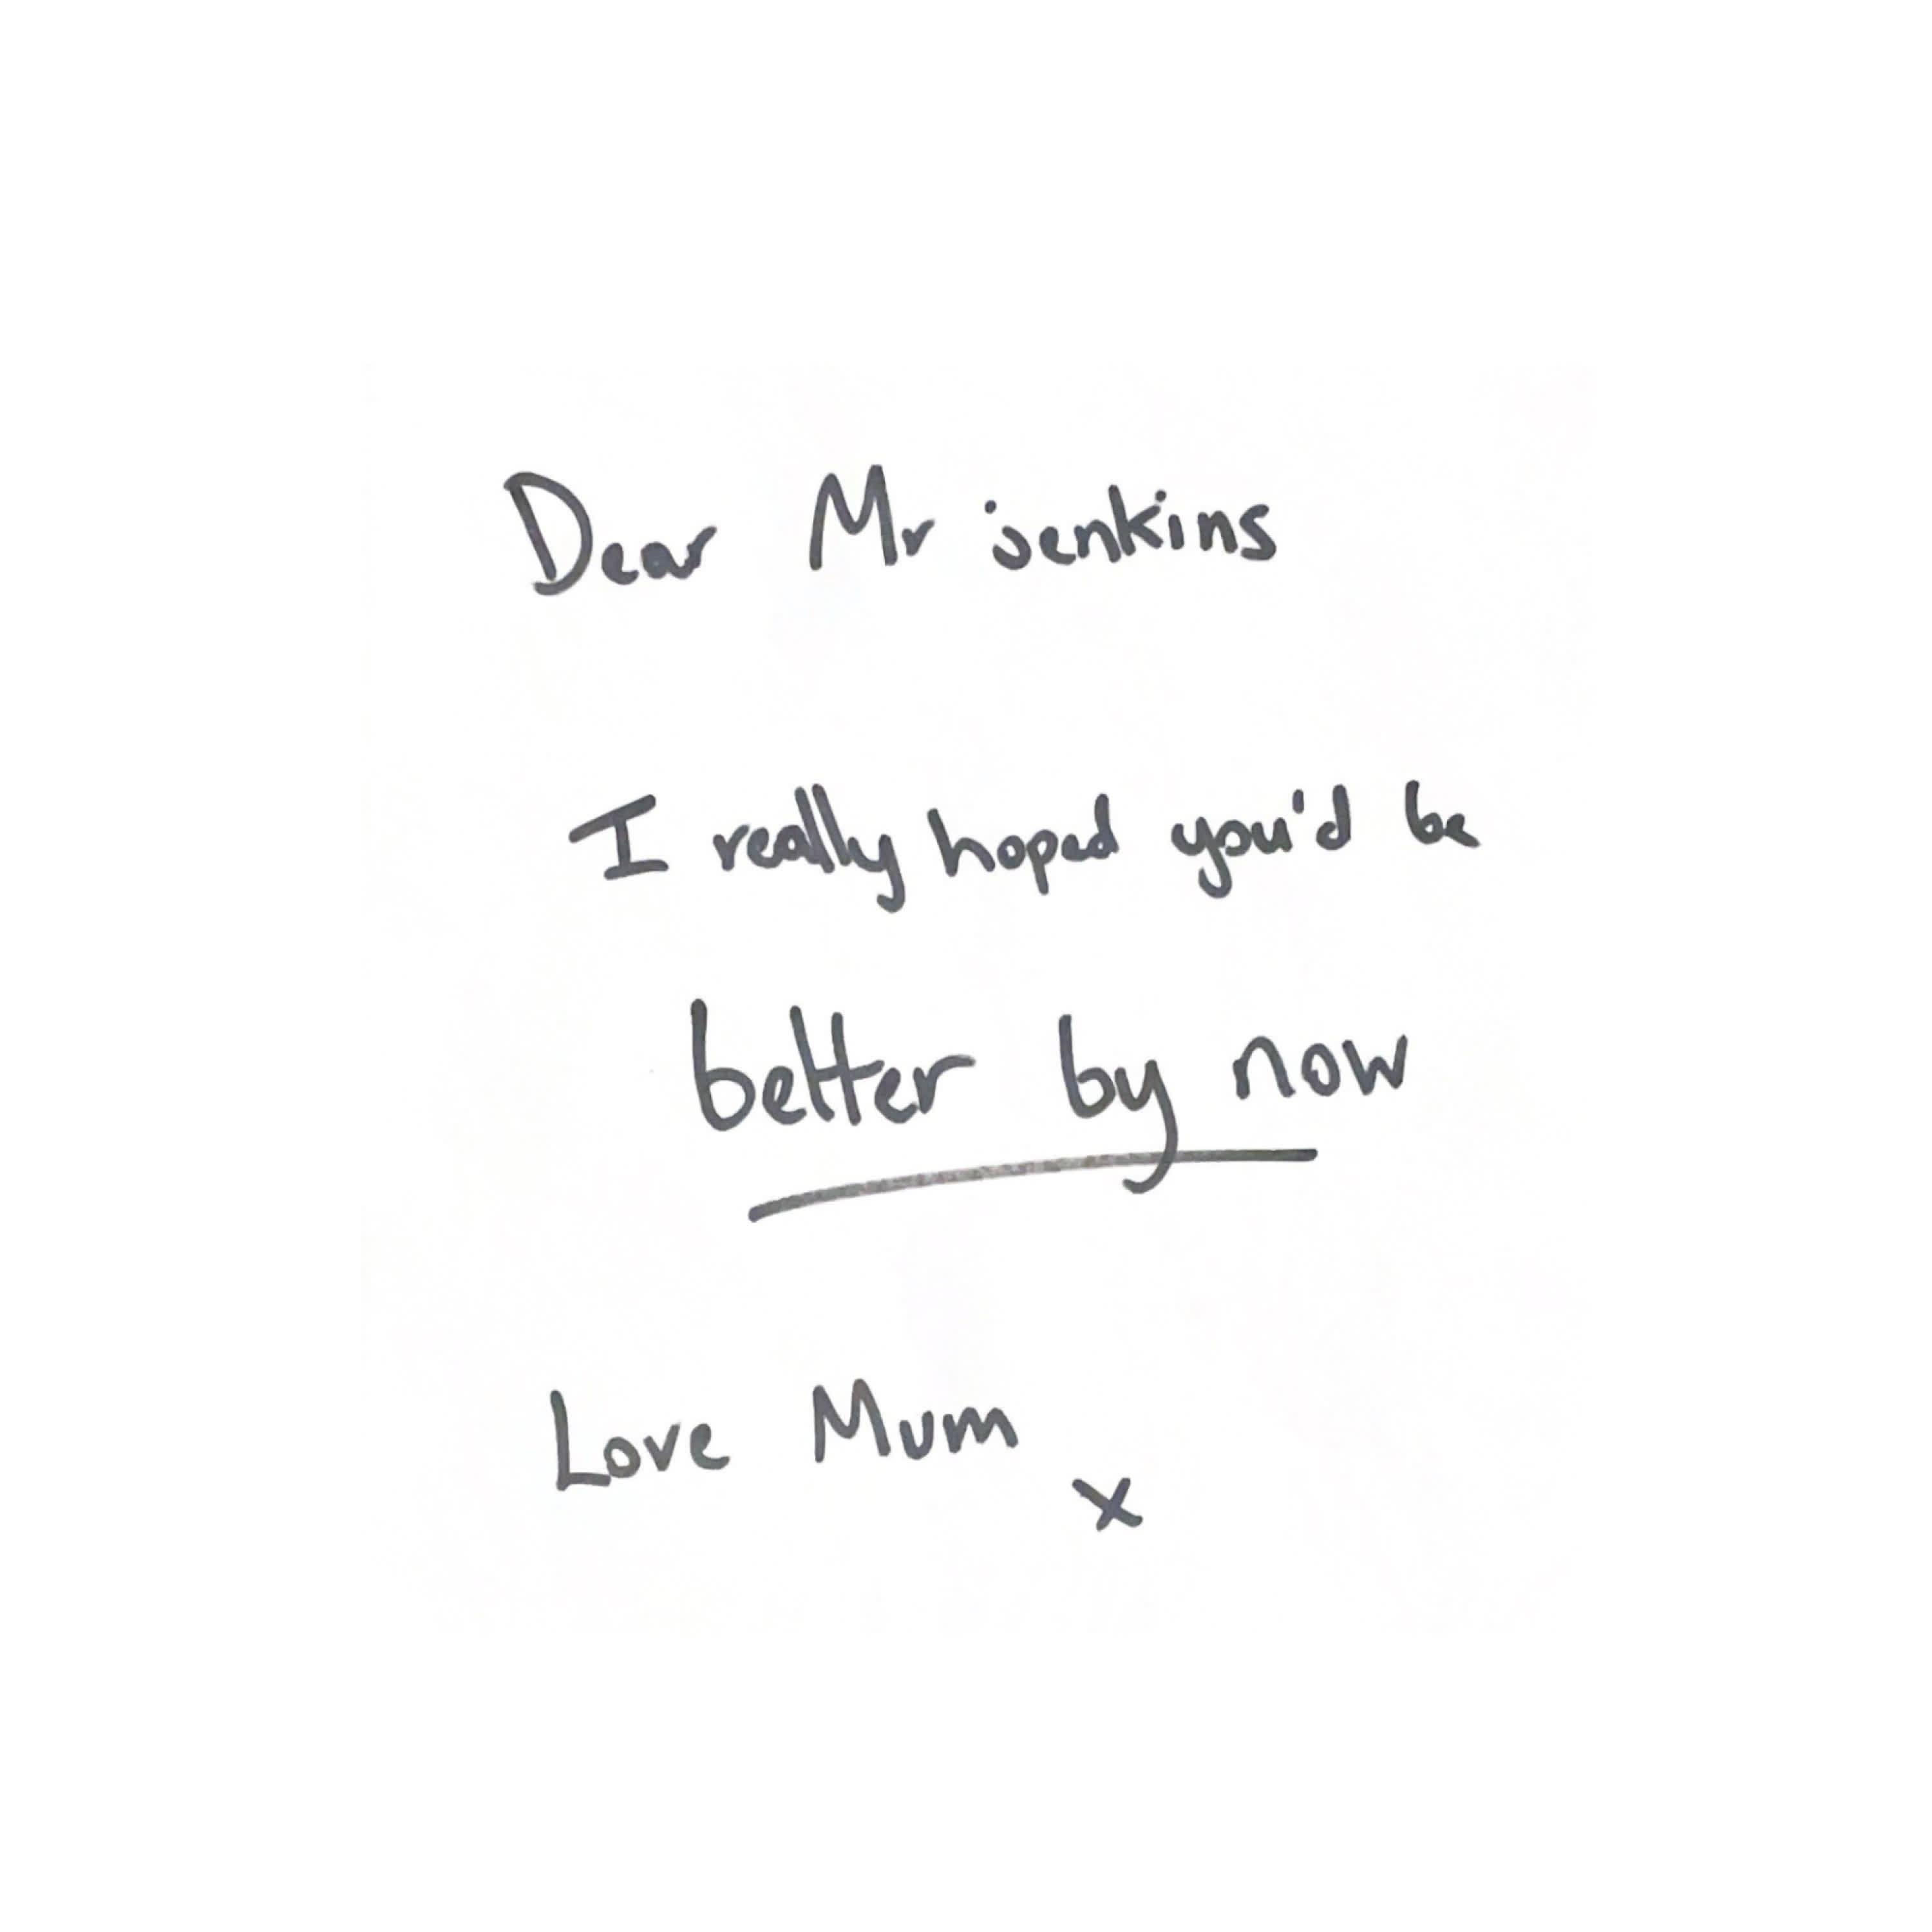 Dear Mr jenkins
I really hoped you'd be
better by now
Love Mum
x